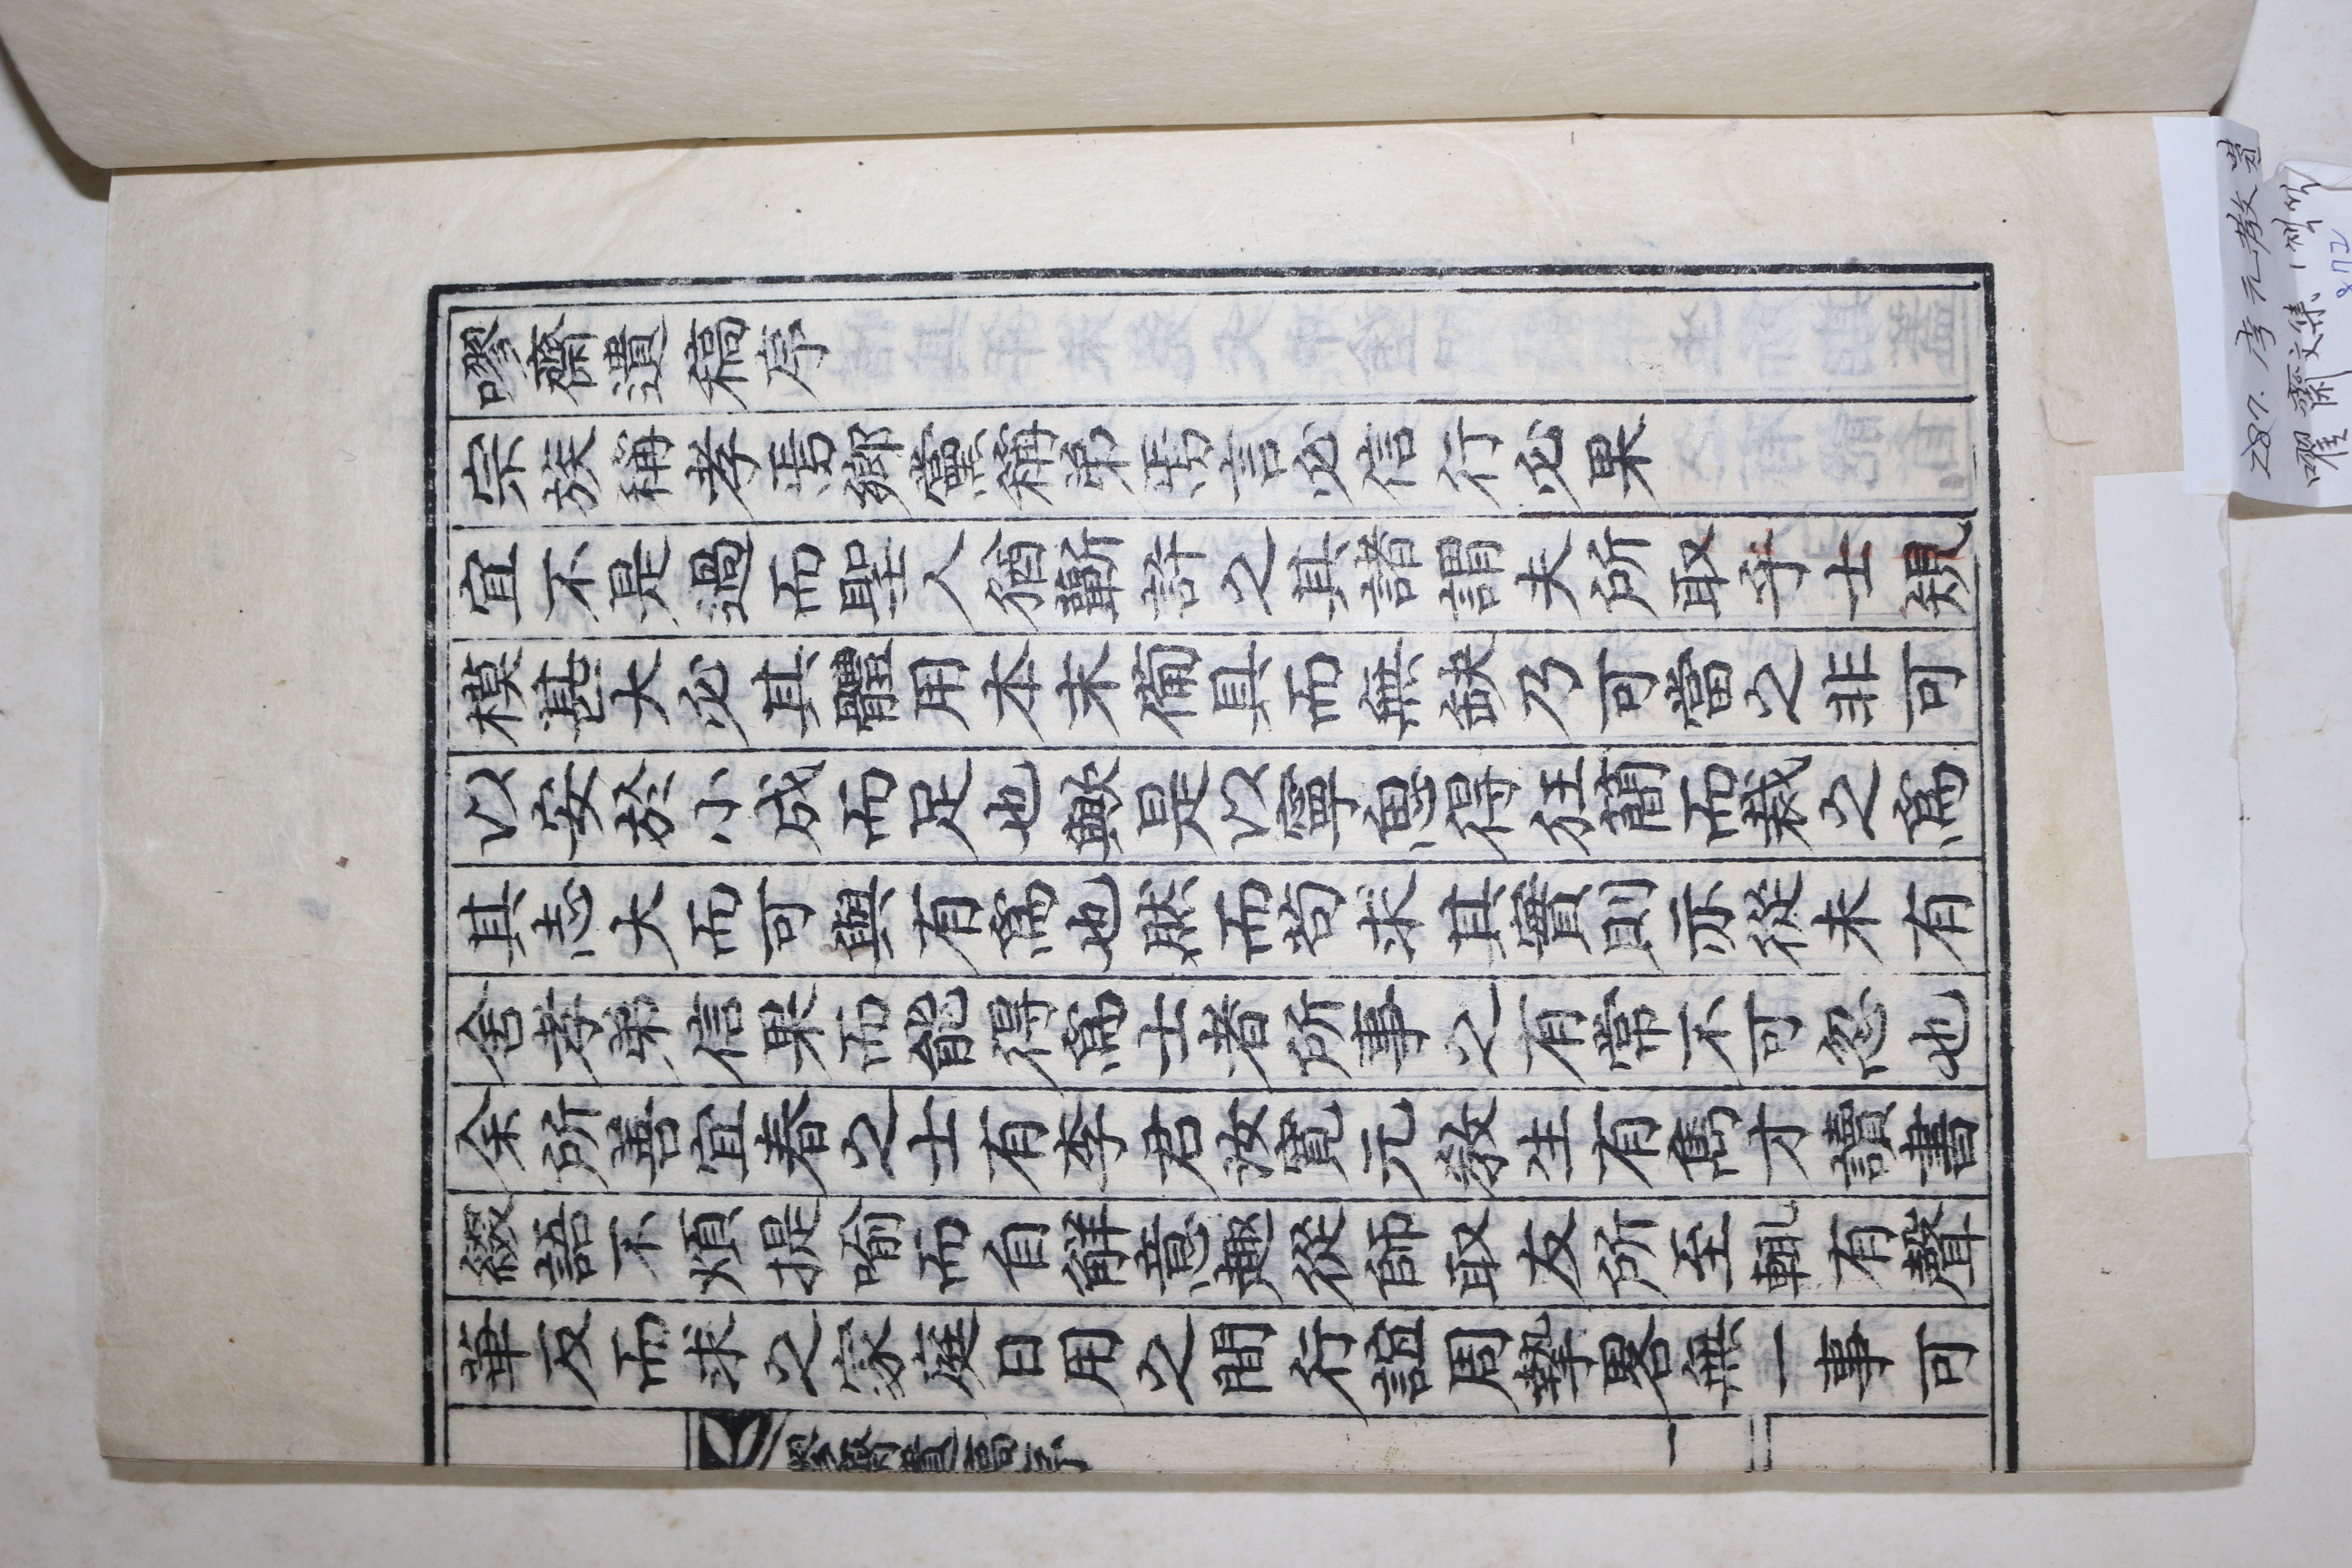 嘐齋遺稿序
宗族稱孝焉鄕黨稱弟焉言必信行必果
宜不是過而聖人猶蘄許之其諸謂夫所取乎士規
模甚大必其體用本末備具而無缺乃可當之非可
以安於小成而足也歟是以寧思得狂簡而裁之爲
其志大而可與有爲也然而苟求其實則亦從未有
舍孝弟信果而能得爲士者所事之有常不可忽也
余所善宜春之士有李君汝寬元敎生有雋才讀書
綴語不煩提喻而自解意趣從師取友所至輒有聲
華反而求之家庭日用之間行誼周摯畧無一事可
嘐齋遺稿序 一
287. 李元敎
齋文集, 1冊
872